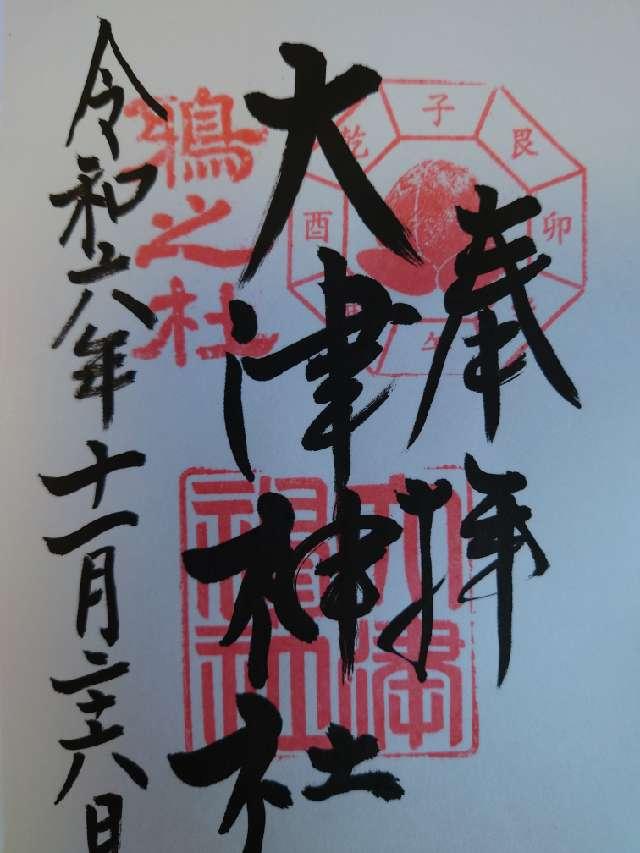 奉拝
大津神社
令和六年十一月二十六日
鵶之社
子
艮
卯
午
酉
乾
大津
神社